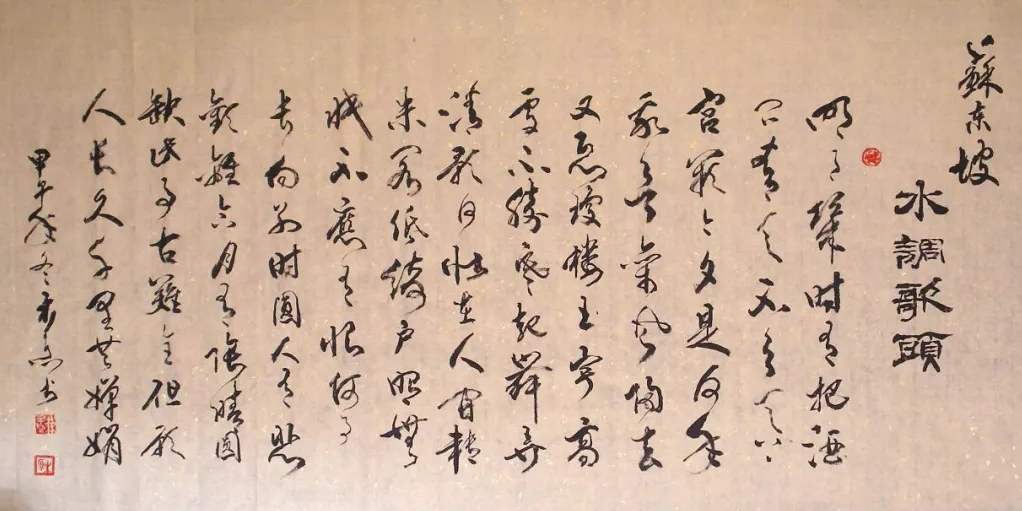 蘇东坡
水調歌頭
明月幾时有把酒
问青天不知天上
宫闕今夕是何年
我欲乘風归去
又恐瓊楼玉宇高
處不勝寒起舞弄
清影何似在人间转
朱阁低绮户照無
眠不應有恨何事
长向别时圆人有悲
歡離合月有陰晴圆
缺此事古難全但願
人长久千里共嬋娟
甲午年冬书